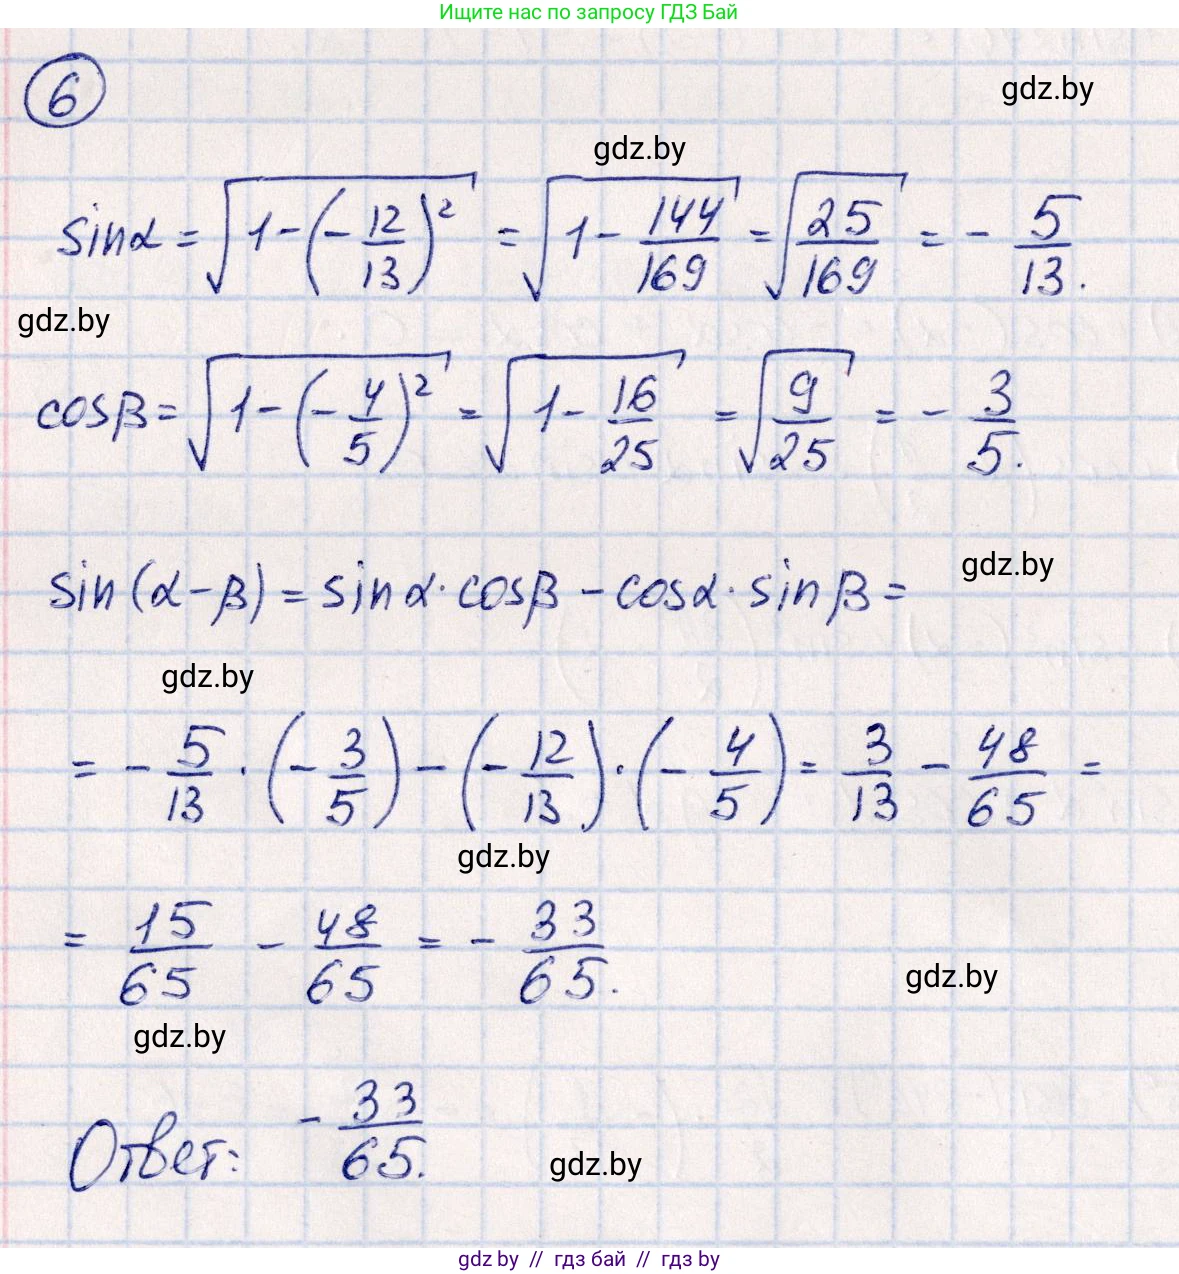 Ищите нас по запросу ГДЗ Бай
6
gdz.by
gdz.by
sinα = √(1-(-12/13)²) = √(1-144/169) = √(25/169) = -5/13.
gdz.by
cosβ = √(1-(-4/5)²) = √(1-16/25) = √(9/25) = -3/5.
gdz.by
sin(α-β) = sinα·cosβ - cosα·sinβ =
gdz.by
= -5/13·(-3/5)-(-12/13)·(-4/5) = 3/13 - 48/65 =
gdz.by
= 15/65 - 48/65 = -33/65.
gdz.by
gdz.by
Ответ: -33/65.
gdz.by
gdz.by // гдз бай // гдз by